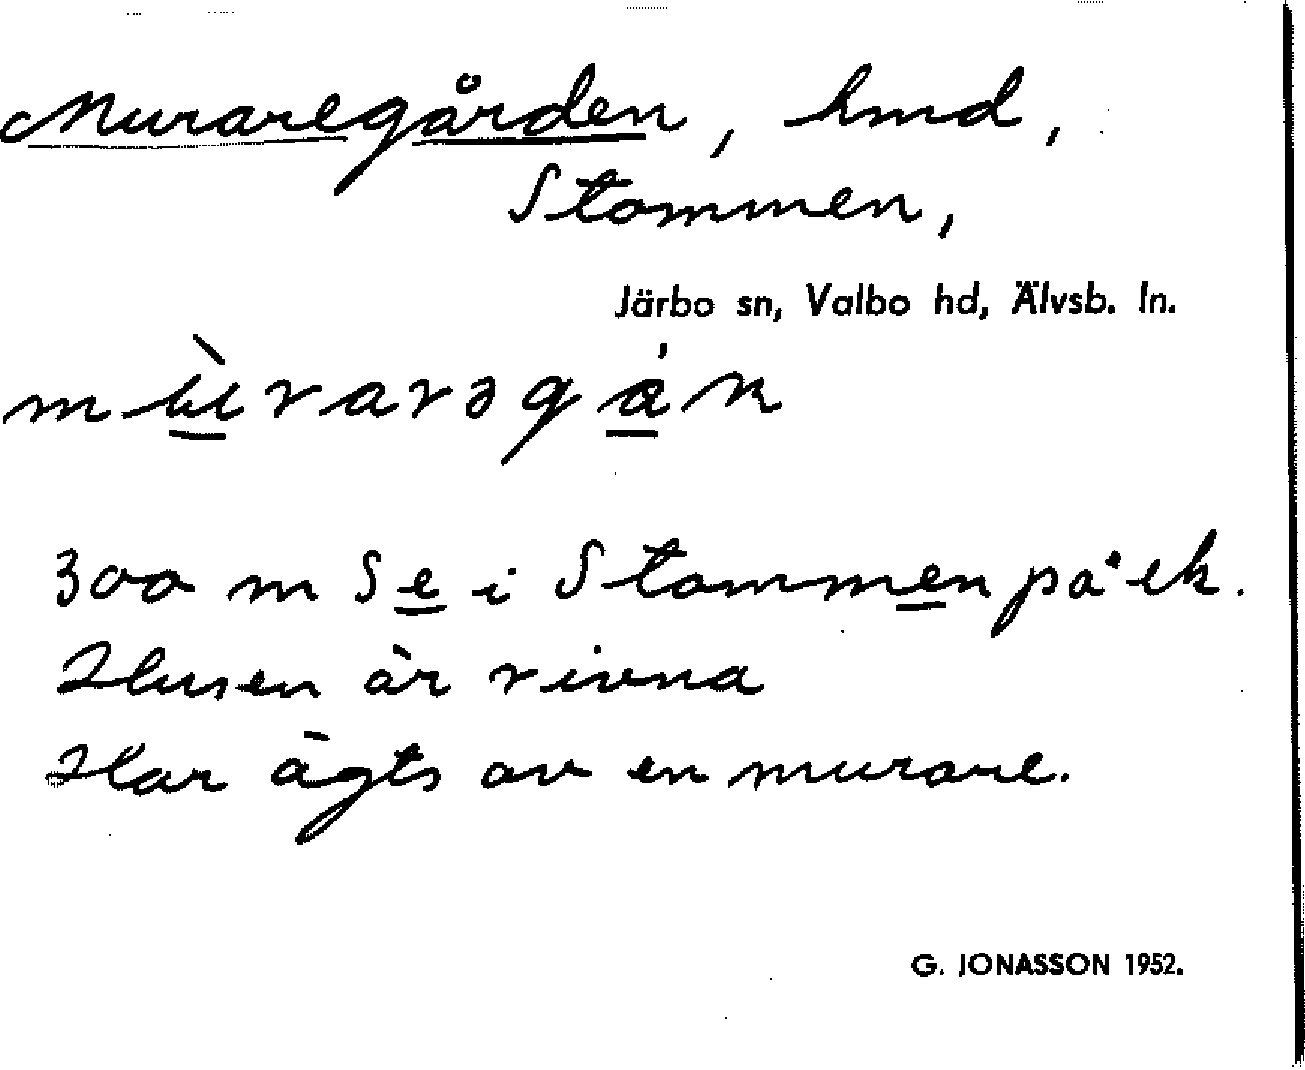 Muraregården, hmd,
Stommen,
Järbo sn, Valbo hd, Älvsb. ln.
mùrarəgá̊n
300 m S e i Stommen på ek.
Husen är rivna
Har ägts av en murare.
G. JONASSON 1952.